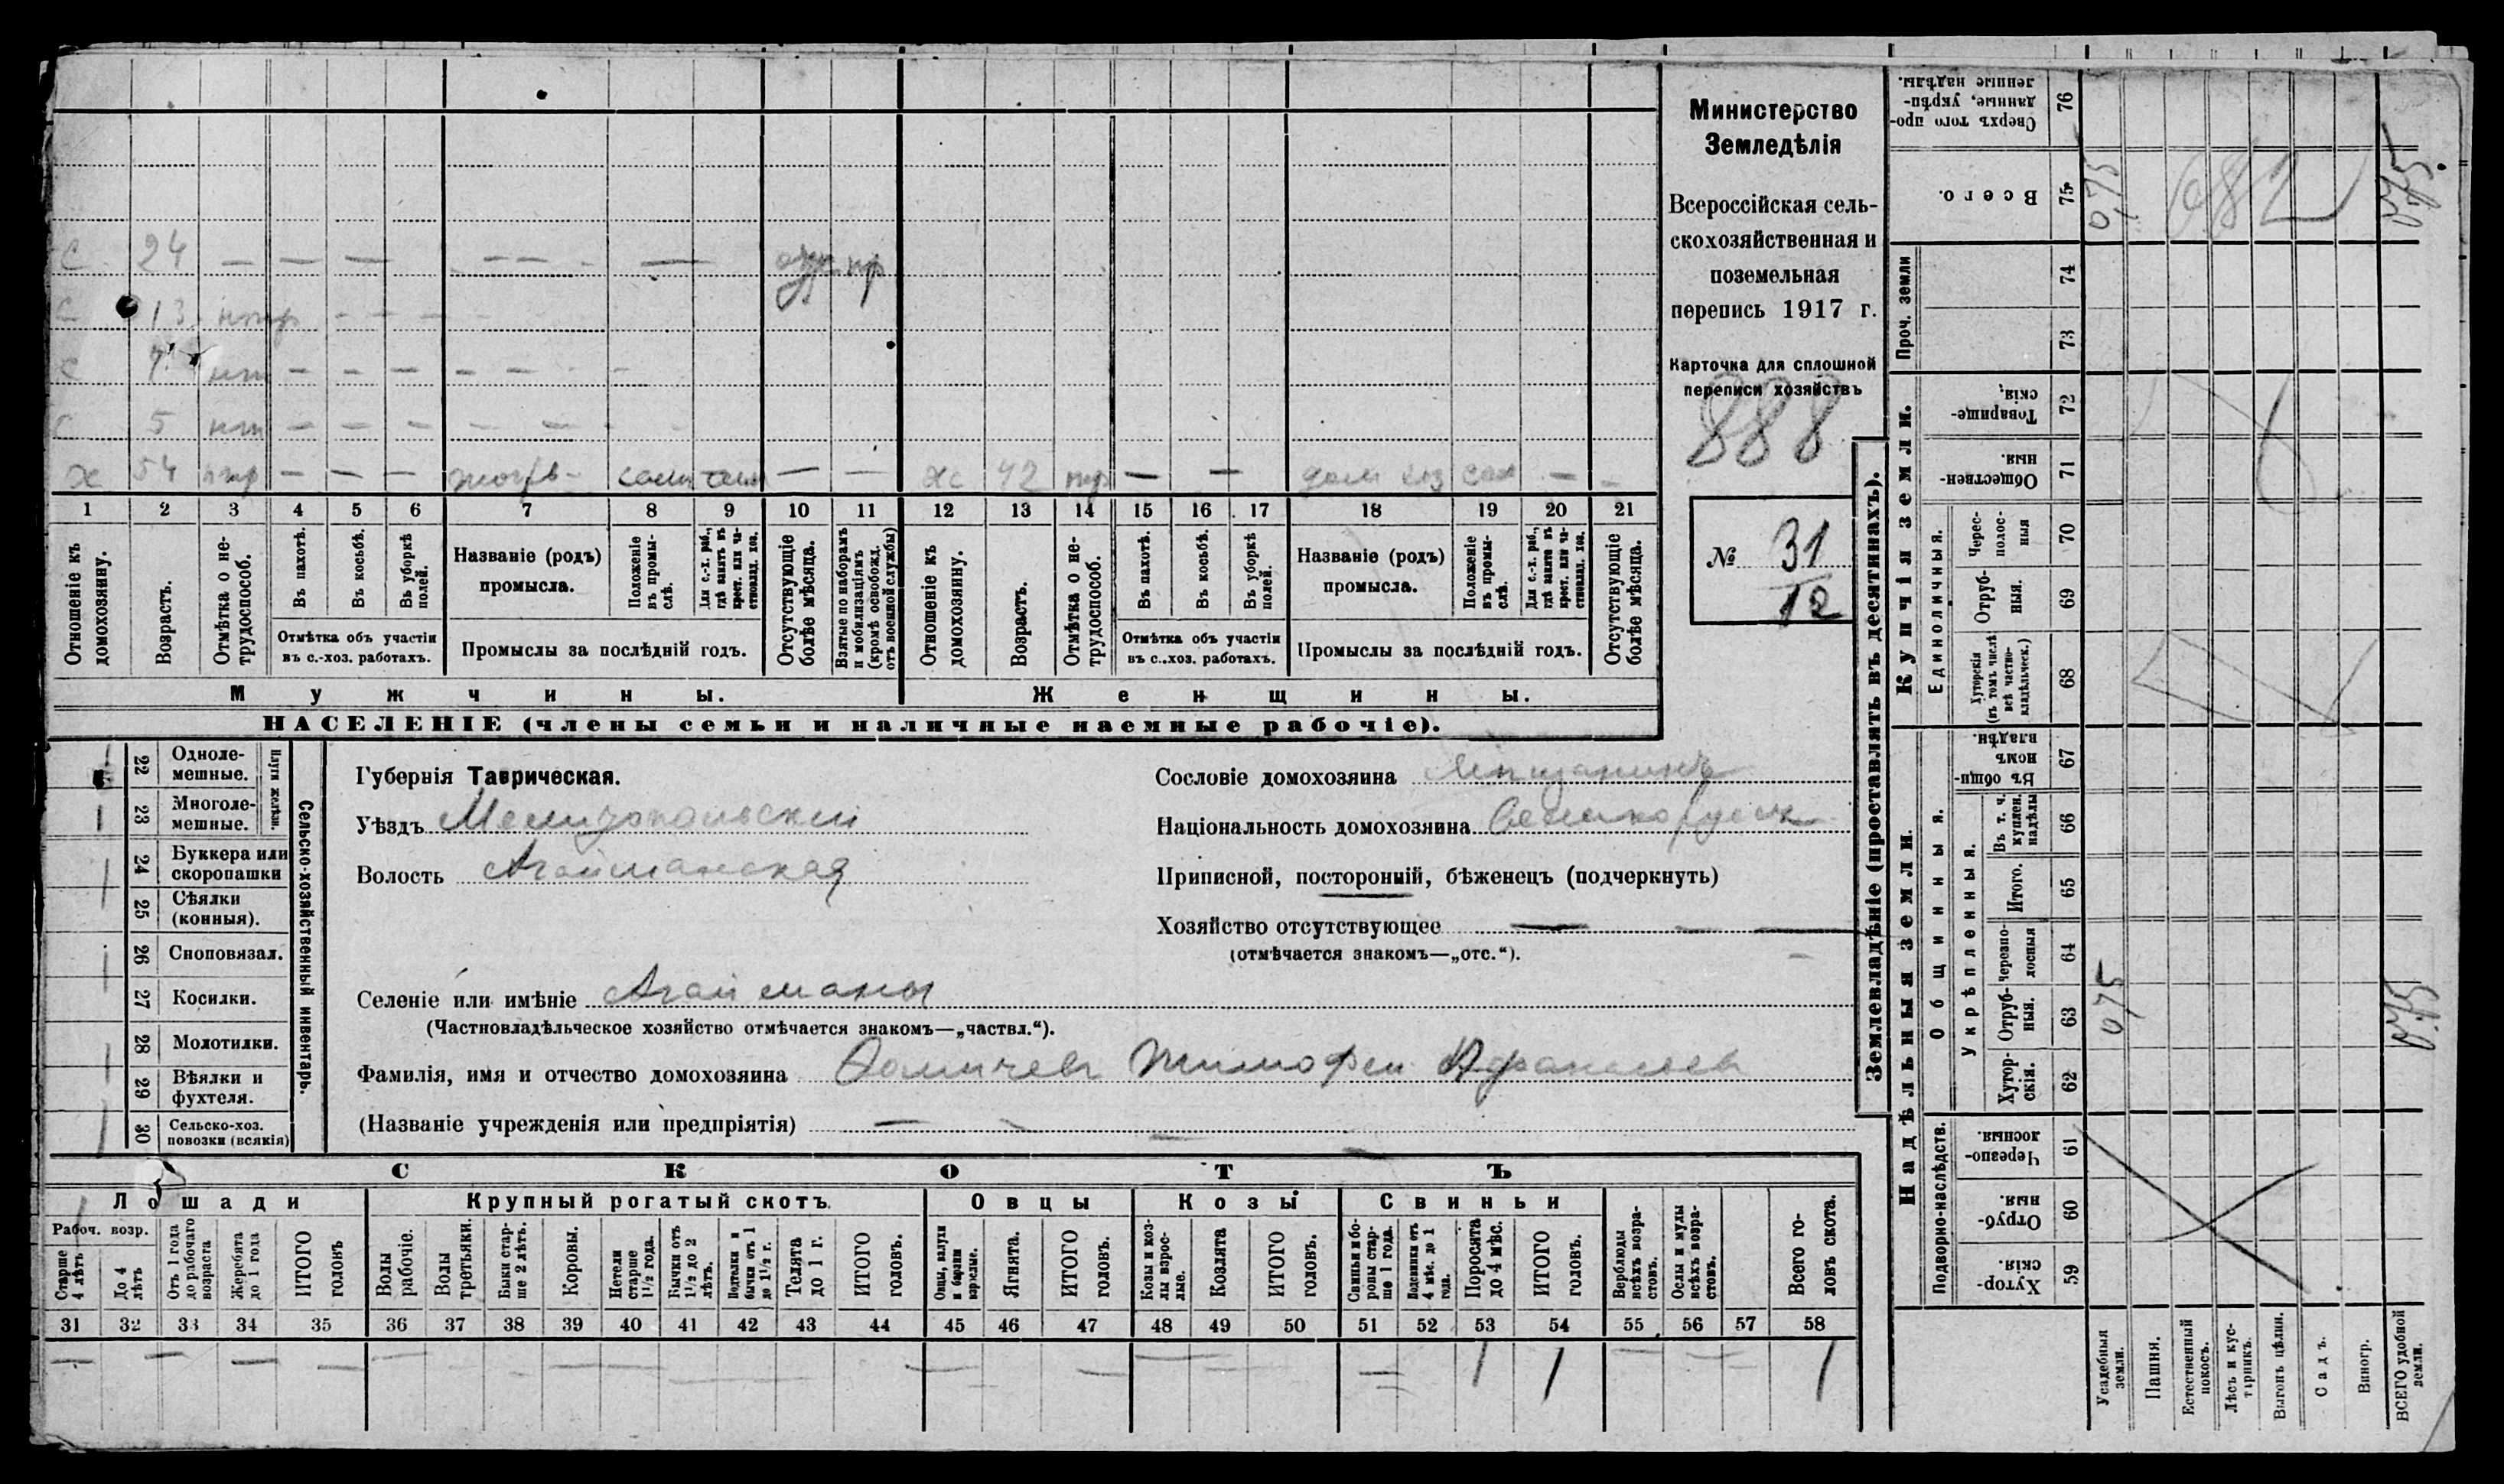 С 24 — — — — — — —
С 13
С 7 — — — — — —
С 5 — — — — — —
х 54 — — — — — хс 42 — — — —
1 2 3 4 5 6 7 8 9 10 11 12 13 14 15 16 17 18 19 20 21
Отношеніе къ домохозяину.
Возрастъ.
Отмѣтка о не-трудоспособ.
Въ пахотѣ.
Въ косьбѣ.
Въ уборкѣ полей.
Отмѣтка объ участіи
въ с.-хоз. работахъ.
Названіе (родъ)
промысла.
Положеніе въ промы-слѣ.
Для с.-х. раб., гдѣ занятъ въ крест. или ча-стновлад. хоз.
Промыслы за послѣдній годъ.
Отсутствующіе болѣе мѣсяца.
Взятые по наборамъ и мобилизаціямъ (кромѣ освобожд. отъ военной службы)
Отношеніе къ домохозяину.
Возрастъ.
Отмѣтка о не-трудоспособ.
Въ пахотѣ.
Въ косьбѣ.
Въ уборкѣ полей.
Отмѣтка объ участіи
въ с.-хоз. работахъ.
Названіе (родъ)
промысла.
Положеніе въ промы-слѣ.
Для с.-х. раб., гдѣ занята въ крест. или ча-стновлад. хоз.
Промыслы за послѣдній годъ.
Отсутствующіе болѣе мѣсяца.
Мужчины.
Женщины.
НАСЕЛЕНІЕ (члены семьи и наличные наемные рабочіе).
Министерство
Земледѣлія
Всероссійская сель-
скохозяйственная и
поземельная
перепись 1917 г.
Карточка для сплошной
переписи хозяйствъ
888
№ 31
12
Плуги желѣзн.
22 Одноле-мешные.
23 Многоле-мешные.
24 Буккера или скоропашки
25 Сѣялки (конныя).
26 Сноповязал.
27 Косилки.
28 Молотилки.
29 Вѣялки и фухтеля.
30 Сельско-хоз. повозки (всякія)
Сельско-хозяйственный инвентарь.
Губернія Таврическая.
Уѣздъ Мелитопольскій
Волость Агайманская
Селеніе или имѣніе Агайманы
(Частновладѣльческое хозяйство отмѣчается знакомъ—„частвл.“).
Фамилія, имя и отчество домохозяина Тимофей
(Названіе учрежденія или предпріятія) —
Сословіе домохозяина Мѣщанинъ
Національность домохозяина Великорусск
Приписной, посторонній, бѣженецъ (подчеркнуть)
Хозяйство отсутствующее — — —
(отмѣчается знакомъ—„отс.“).
СКОТЪ
Лошади
Крупный рогатый скотъ.
Овцы
Козы
Свиньи
Рабоч. возр.
Старше 4 лѣтъ
До 4 лѣтъ
Отъ 1 года до рабочаго возраста
Жеребята до 1 года
ИТОГО головъ
Волы рабочіе.
Волы третьяки.
Быки стар-ше 2 лѣтъ.
Коровы.
Нетели старше 1½ года.
Бычки отъ 1½ до 2 лѣтъ.
Подтелки и бычки отъ 1 до 1½ г.
Телята до 1 г.
ИТОГО головъ.
Овцы, валухи и бараны взрослые.
Ягнята.
ИТОГО головъ.
Козы и коз-лы взрос-лые.
Козлята
ИТОГО головъ.
Свиньи и бо-ровы стар-ше 1 года.
Подсвинки отъ 4 мѣс. до 1 года.
Поросята до 4 мѣс.
ИТОГО головъ.
Верблюды всѣхъ возра-стовъ.
Ослы и мулы всѣхъ возра-стовъ.
Всего го-ловъ скота.
31 32 33 34 35 36 37 38 39 40 41 42 43 44 45 46 47 48 49 50 51 52 53 54 55 56 57 58
— — — — — — — — — — — 1 1 — — 1
Землевладѣніе (проставлять въ десятинахъ).
Надѣльныя земли.
Купчія земли.
Проч. земли
Подворно-наслѣдств.
Общинныя.
Укрѣпленныя.
Единоличныя.
Хутор-скія. 59
Отруб-ныя. 60
Черезпо-лосныя. 61
Хутор-скія. 62
Отруб-ныя. 63
Черезпо-лосныя 64
Итого. 65
Въ т. ч. куплен. надѣлы 66
Въ общи-номъ владѣн. 67
Хуторскія (въ томъ числѣ всѣ частно-владѣльческ.) 68
Отруб-ныя. 69
Черес-полос-ныя 70
Обществен-ныя. 71
Товарище-скія. 72
73
74
Всего. 75
Сверхъ того про-данные, укрѣп-ленные надѣлы. 76
Усадебныя земли.
Пашня.
Естественный покосъ.
Лѣсъ и кус-тарникъ.
Выгонъ цѣлин.
Садъ.
Виногр.
ВСЕГО удобной земли.
0,75
0,75
682
0,75
0,75